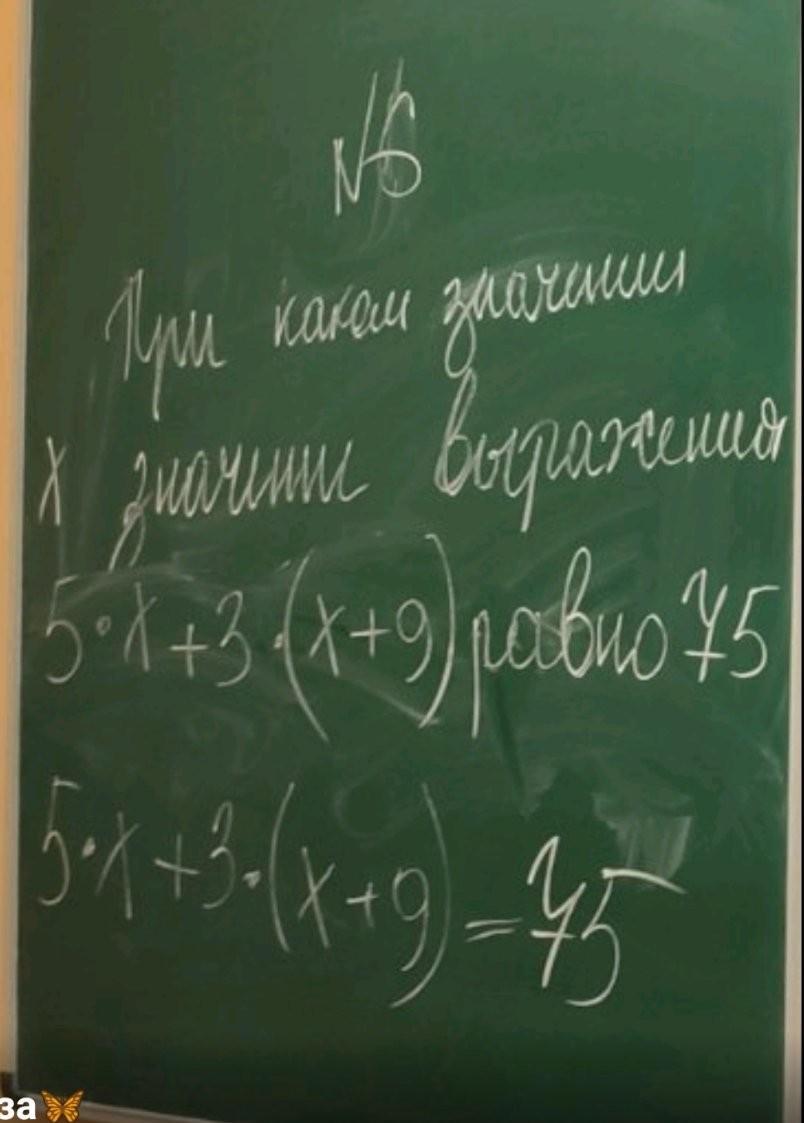 №6
При каком значении
x значение выражения
5·x+3·(x+9) равно 75
5·x+3·(x+9)=75
за🦋